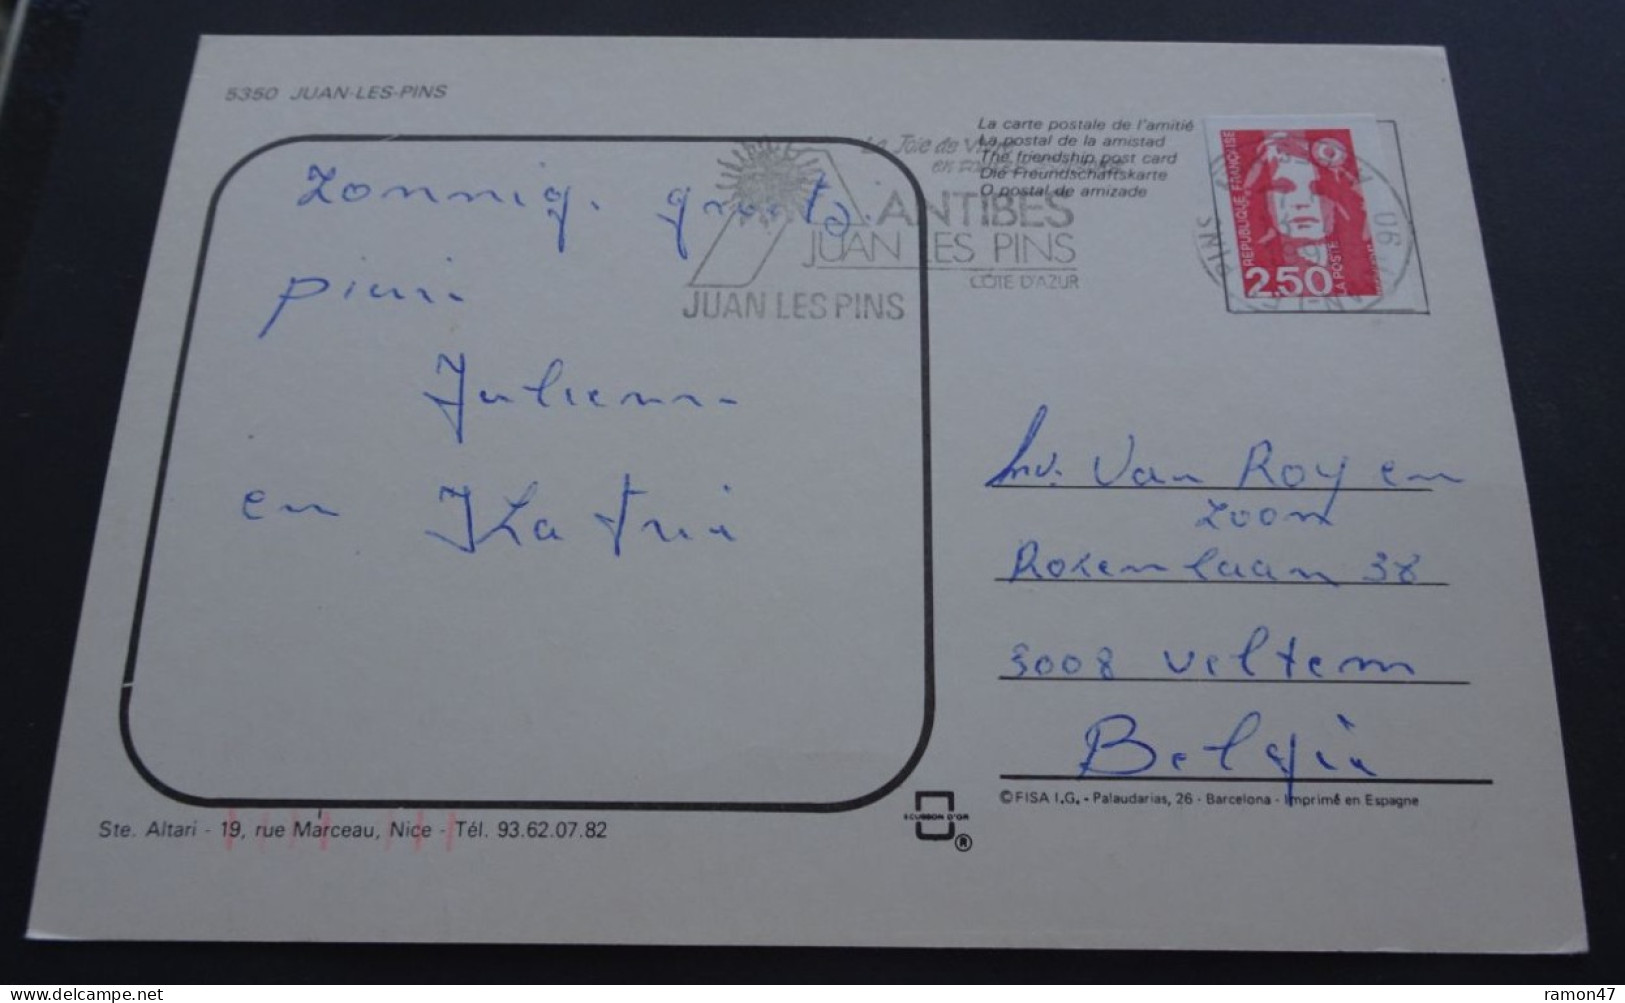 5350 JUAN-LES-PINS
La carte postale de l'amitié
La postal de la amistad
The friendship post card
Die Freundschaftskarte
O postal de amizade
La Joie de Vivre
ANTIBES
JUAN LES PINS
CÔTE D'AZUR
JUAN LES PINS
REPUBLIQUE FRANÇAISE
2,50
LA POSTE
PINS
06
Zonnig. groetj.
en Katrin
Van Roy en
Zoon
Rozenlaan 38
3008 Veltem
België
©FISA I.G. - Palaudarias, 26 - Barcelona - Imprimé en Espagne
ECUSSON D'OR
®
Ste. Altari - 19, rue Marceau, Nice - Tél. 93.62.07.82
ramon47